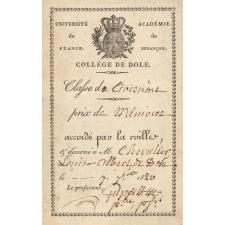 UNIVERSITÉ ACADÉMIE
de de
FRANCE. BESANÇON.
COLLÈGE DE DOLE.
Classe de Troisième
prix de Mémoire
accordé par la ville,
et décerné à Mr Chevalier
Louis Albert de Dole
le 7 7bre 1820
Le professeur,